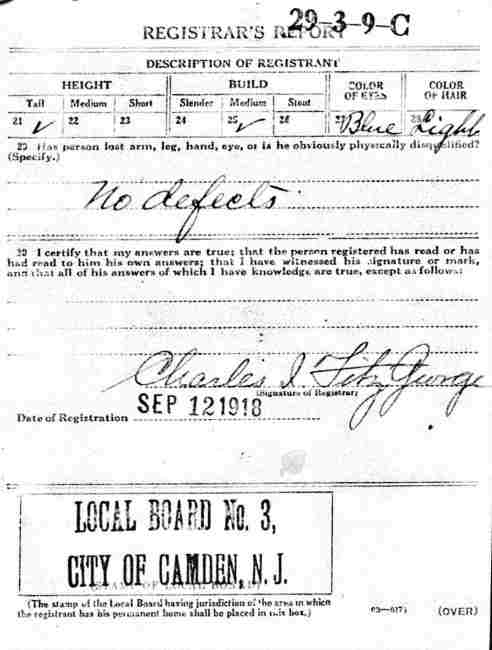 29-3-9-C
REGISTRAR'S REPORT
DESCRIPTION OF REGISTRANT
HEIGHT BUILD COLOR OF EYES COLOR OF HAIR
Tall Medium Short Slender Medium Stout
21 ✓ 22 23 24 25 ✓ 26 27 Blue 28 Light
29 Has person lost arm, leg, hand, eye, or is he obviously physically disqualified?
(Specify.)
No defects.
30 I certify that my answers are true; that the person registered has read or has
had read to him his own answers; that I have witnessed his signature or mark,
and that all of his answers of which I have knowledge are true, except as follows:
Charles I. Fitz George
(Signature of Registrar)
Date of Registration SEP 12 1918
LOCAL BOARD No. 3,
CITY OF CAMDEN, N. J.
(STAMP OF LOCAL BOARD)
(The stamp of the Local Board having jurisdiction of the area in which
the registrant has his permanent home shall be placed in this box.)
(OVER)